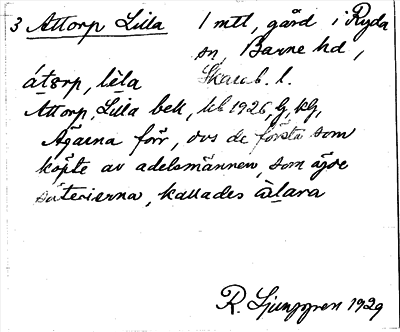 3 Attorp Lilla 1 mtl, gård i Ryda
sn, Barne hd,
átorp, lila Skarab. l.
Attorp, Lilla bek, kb 1926, lj, klj,
Ägarna förr, dvs de första som
köpte av adelsmännen, som ägde
säterierna, kallades älara
R. Ljunggren 1929